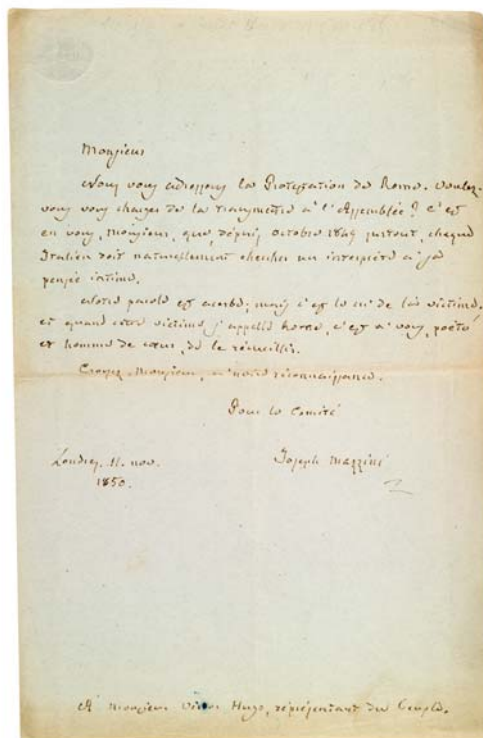 Monsieur
Nous vous adressons la Protestation de Rome. Voulez-
vous vous charger de la transmettre à l'Assemblée? C'est
en vous, Monsieur, que, dépuis Octobre 1849 surtout, chaque
Italien doit naturellement chercher un interprète à sa
pensée intime.
Notre parole est acerbe; mais c'est le cri de la victime.
et quand cette victime s'appelle Rome, c'est à vous, poète
et homme de cœur, de le recueillir.
Croyez, Monsieur, à notre réconnaissance.
Pour le Comité
Londres. 11. nov. Joseph Mazzini
1850.
A Monsieur Victor Hugo, réprésentant du Peuple.